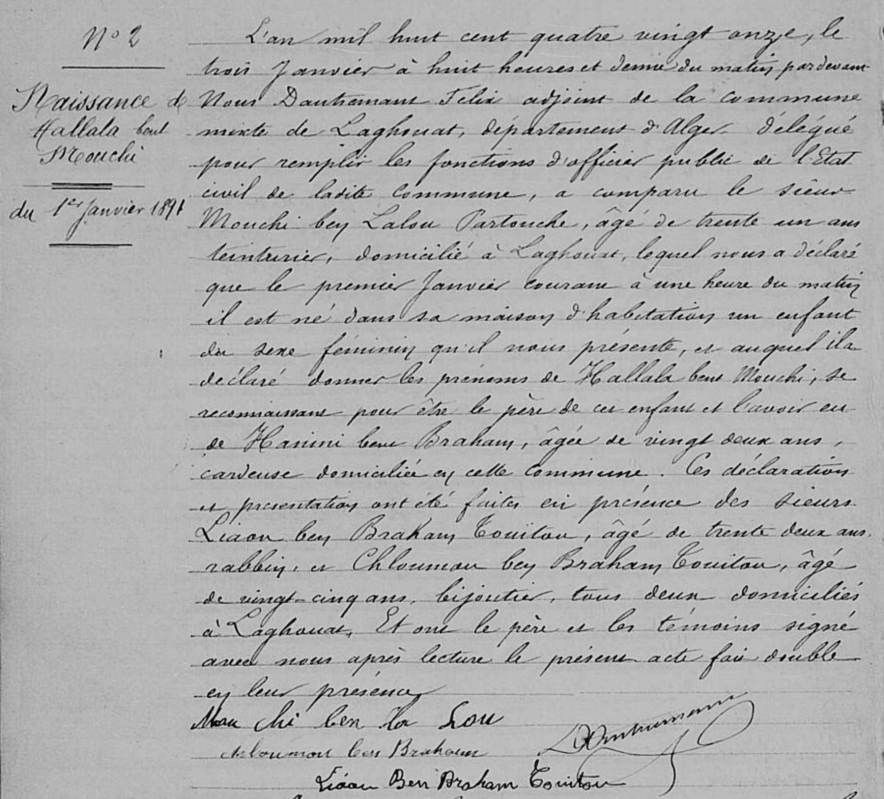 N° 2
Naissance de
Hallala bent
Mouchi
du 1er Janvier 1891
L'an mil huit cent quatre vingt onze, le
trois Janvier à huit heures et demie du matin, pardevant
Nous Dautremant Felix adjoint de la commune
mixte de Laghouat, département d'Alger délégué
pour remplir les fonctions d'officier public de l'Etat
civil de ladite commune, a comparu le sieur
Mouchi ben Lalou Partouche, âgé de trente un ans
teinturier, domicilié à Laghouat, lequel nous a déclaré
que le premier Janvier courant à une heure du matin
il est né dans sa maison d'habitation un enfant
du sexe féminin qu'il nous présente, et auquel il a
déclaré donner les prénoms de Hallala bent Mouchi, se
reconnaissant pour être le père de cet enfant et l'avoir eu
de Hanini bent Braham, âgée de vingt deux ans,
cardeuse domiciliée en cette commune. Ces déclaration
et présentation ont été faites en présence des sieurs
Liaou ben Braham Touitou, âgé de trente deux ans,
rabbin, et Chloumou ben Braham Touitou, âgé
de vingt-cinq ans, bijoutier, tous deux domiciliés
à Laghouat, Et ont le père et les témoins signé
avec nous après lecture le présent acte fait double
en leur présence
Mou chi ben la Lou
chloumou ben Braham Dautremant
Liaou Ben Braham Touitou